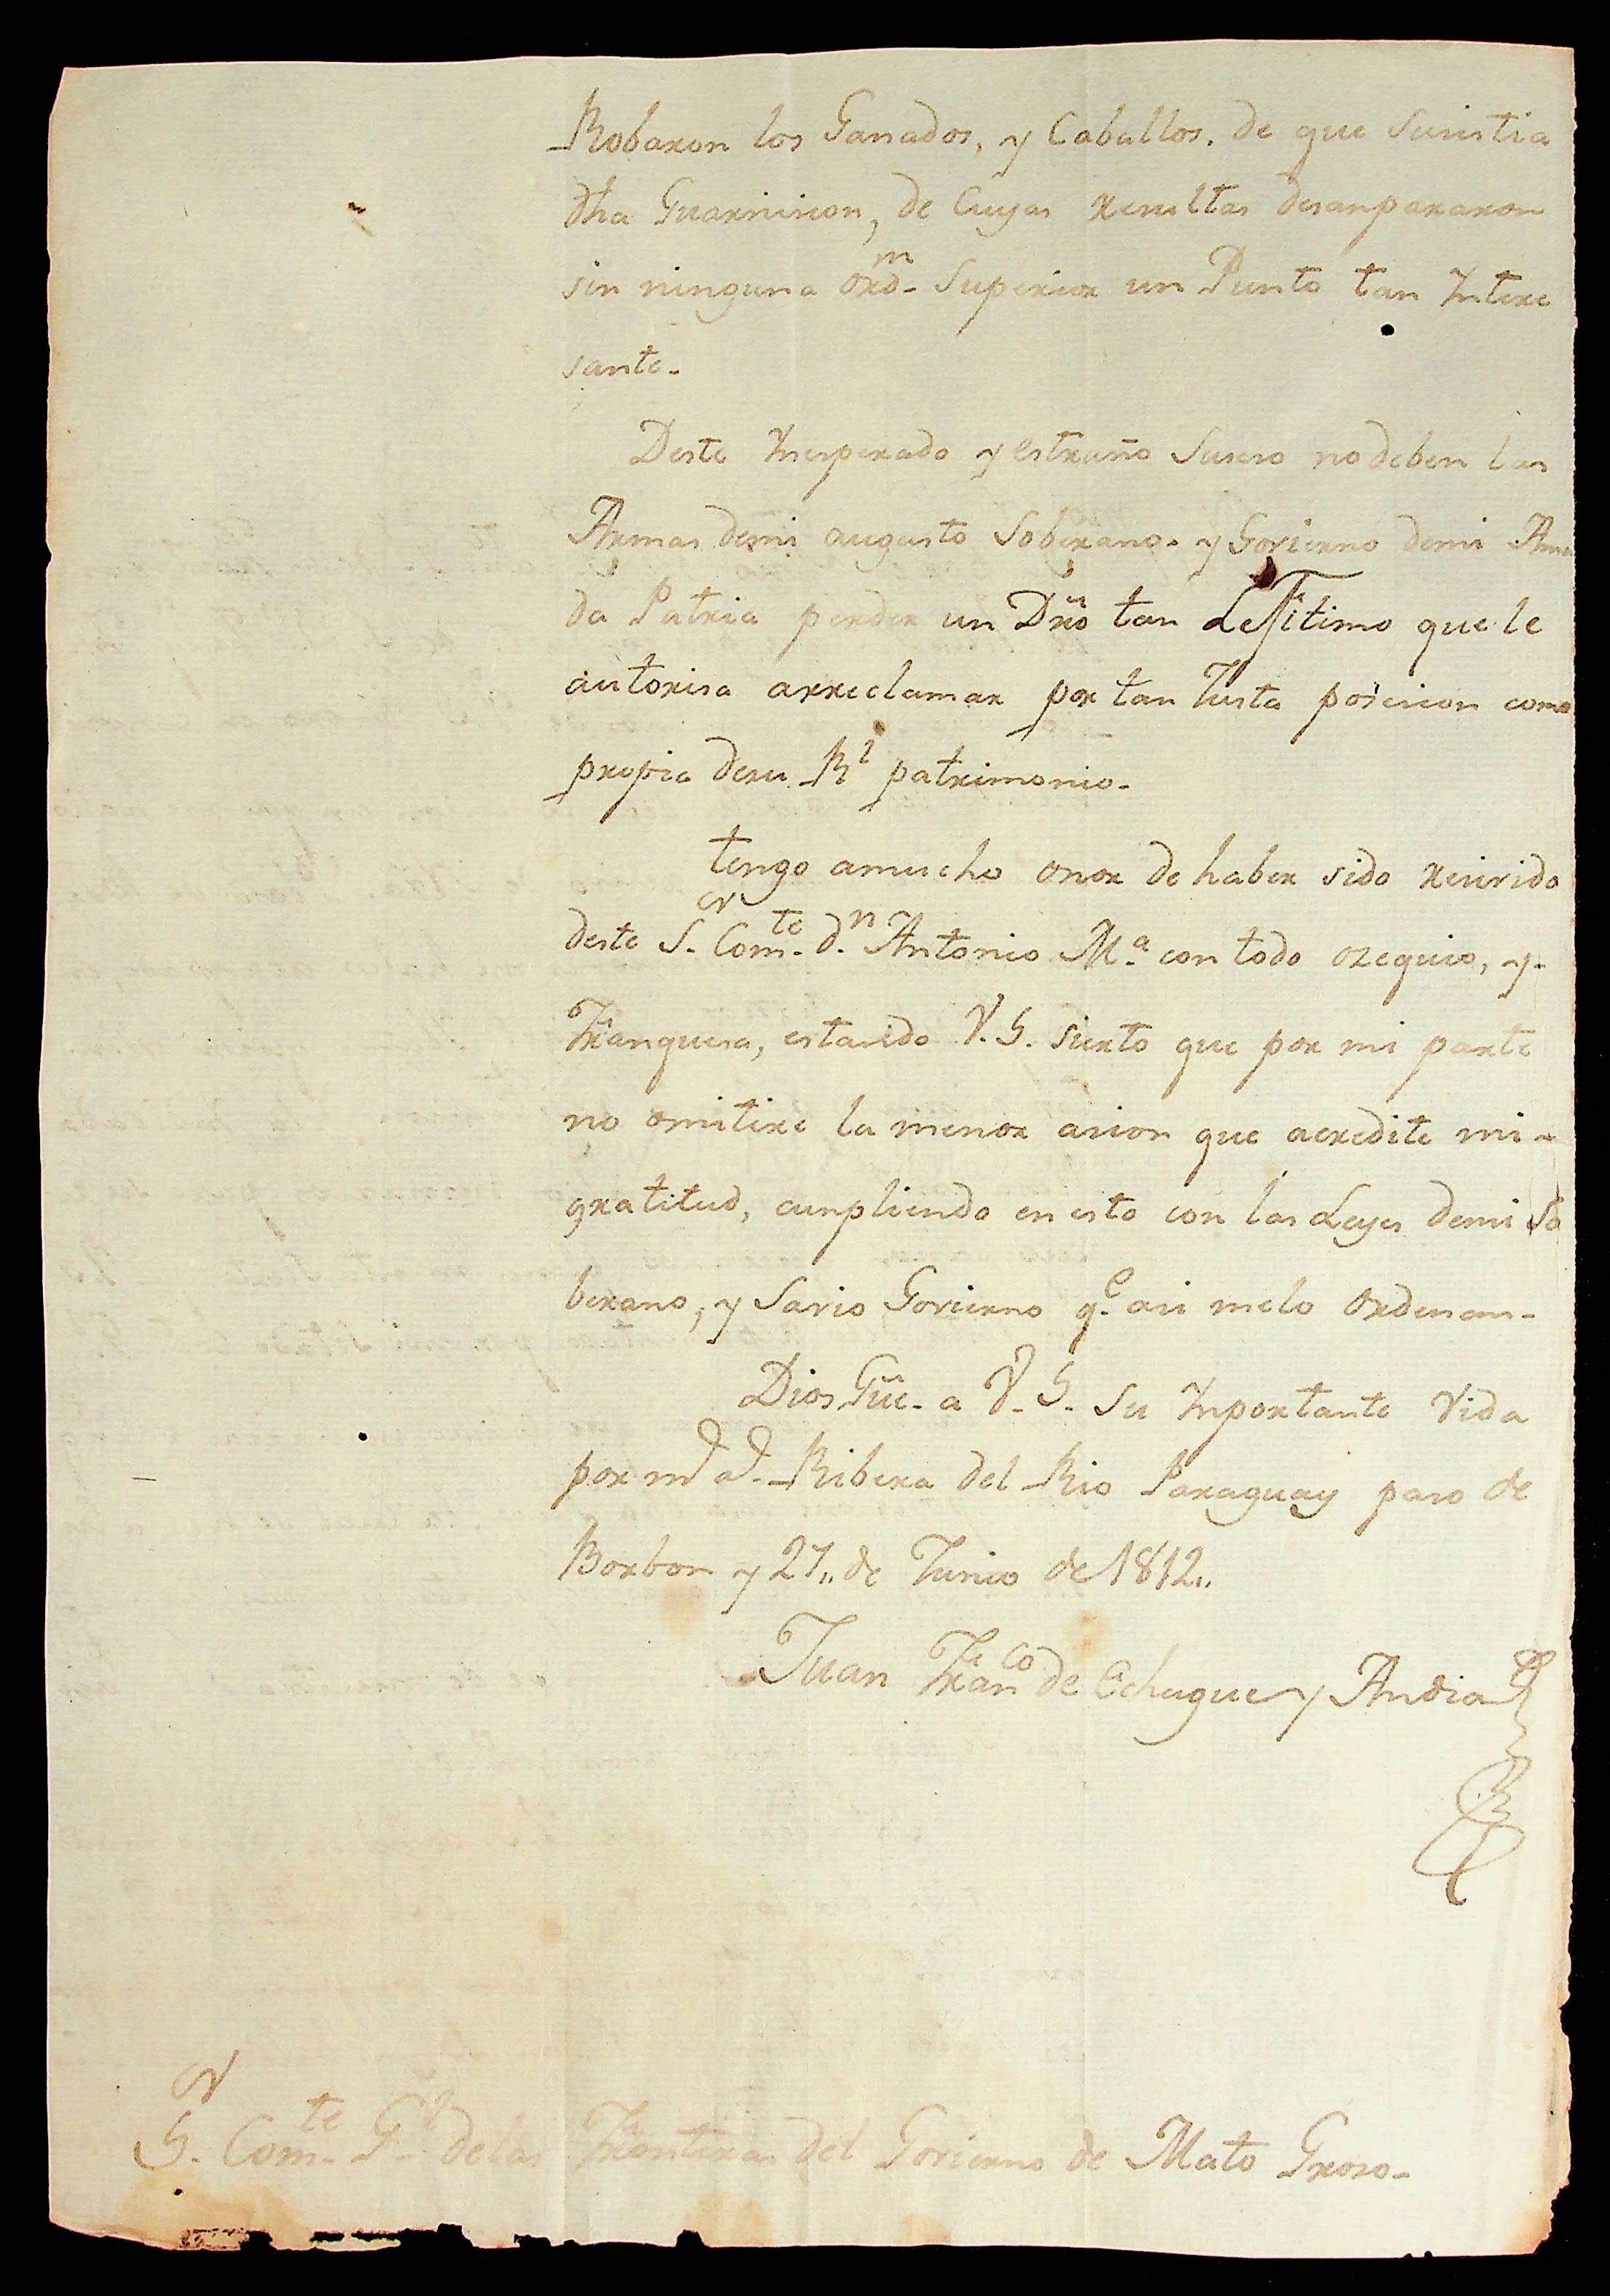 Robaron los Ganados, y Caballos. de que Suristia
dha Guarnision, de Cuyas resultas desanpararon
sin ninguna ordn. Superior un Punto tan Intere
sante.
Deste Inesperado y estraño Suseso no deben las
Armas demi augusto Soberano. y Govierno demi Ama
da Patria perder un Dro tan Lexitimo que le
autorisa arreclamar por tan Justa posicion como
propia desu Rl patrimonio.
tengo amucho onor de haber sido resivido
deste Sor. Comte. dn. Antonio Ma. con todo ozequio, y
Franquesa, estando V. S. sierto que por mi parte
no omitire la menor asion que acredite mi
gratitud, cunpliendo en esto con las Leyes demi So
berano, y Savio Govierno qe. asi melo ordenan.
Dios Gue. a V. S. Su Inportante Vida
por md ad. Ribera del Rio Paraguay paso de
Borbon y 27,, de Junio de 1812,,
Juan Franco de Echague y Andia
Sor. Comte. Gl. delas Fronteras del Govierno de Mato Groso.